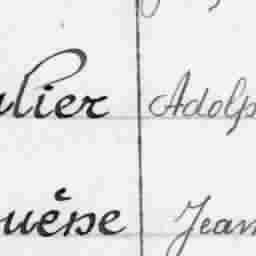 alier Adolp
uèse Jean